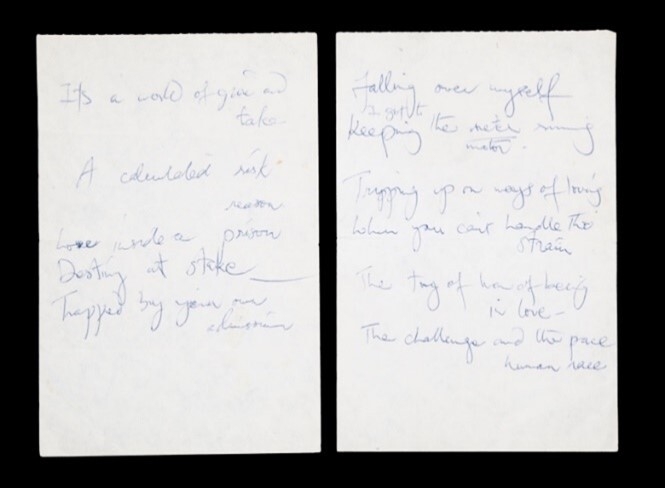 It's a world of give and
take
A calculated risk
reason
Love inside a prison
Destiny at stake
Trapped by your own
admission
Falling over myself
I got to
Keeping the meter running
motor
Tripping up on ways of loving
When you can't handle the
strain
The of being
in love
The challenge and the pace
human race